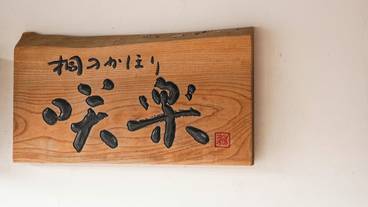 桐のかほり
咲楽